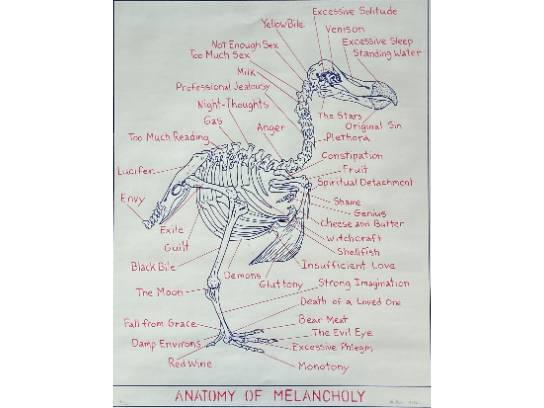 Excessive Solitude
Yellow Bile
Venison
Excessive Sleep
Not Enough Sex
Standing Water
Too Much Sex
Milk
Professional Jealousy
Night-Thoughts
The Stars
Gas
Original Sin
Anger
Too Much Reading
Plethora
Constipation
Lucifer
Fruit
Spiritual Detachment
Envy
Shame
Genius
Exile
Cheese and Butter
Witchcraft
Guilt
Shellfish
Black Bile
Insufficient Love
Demons
Gluttony
Strong Imagination
The Moon
Death of a Loved One
Fall from Grace
Bear Meat
The Evil Eye
Damp Environs
Excessive Phlegm
Red Wine
Monotony
ANATOMY OF MELANCHOLY